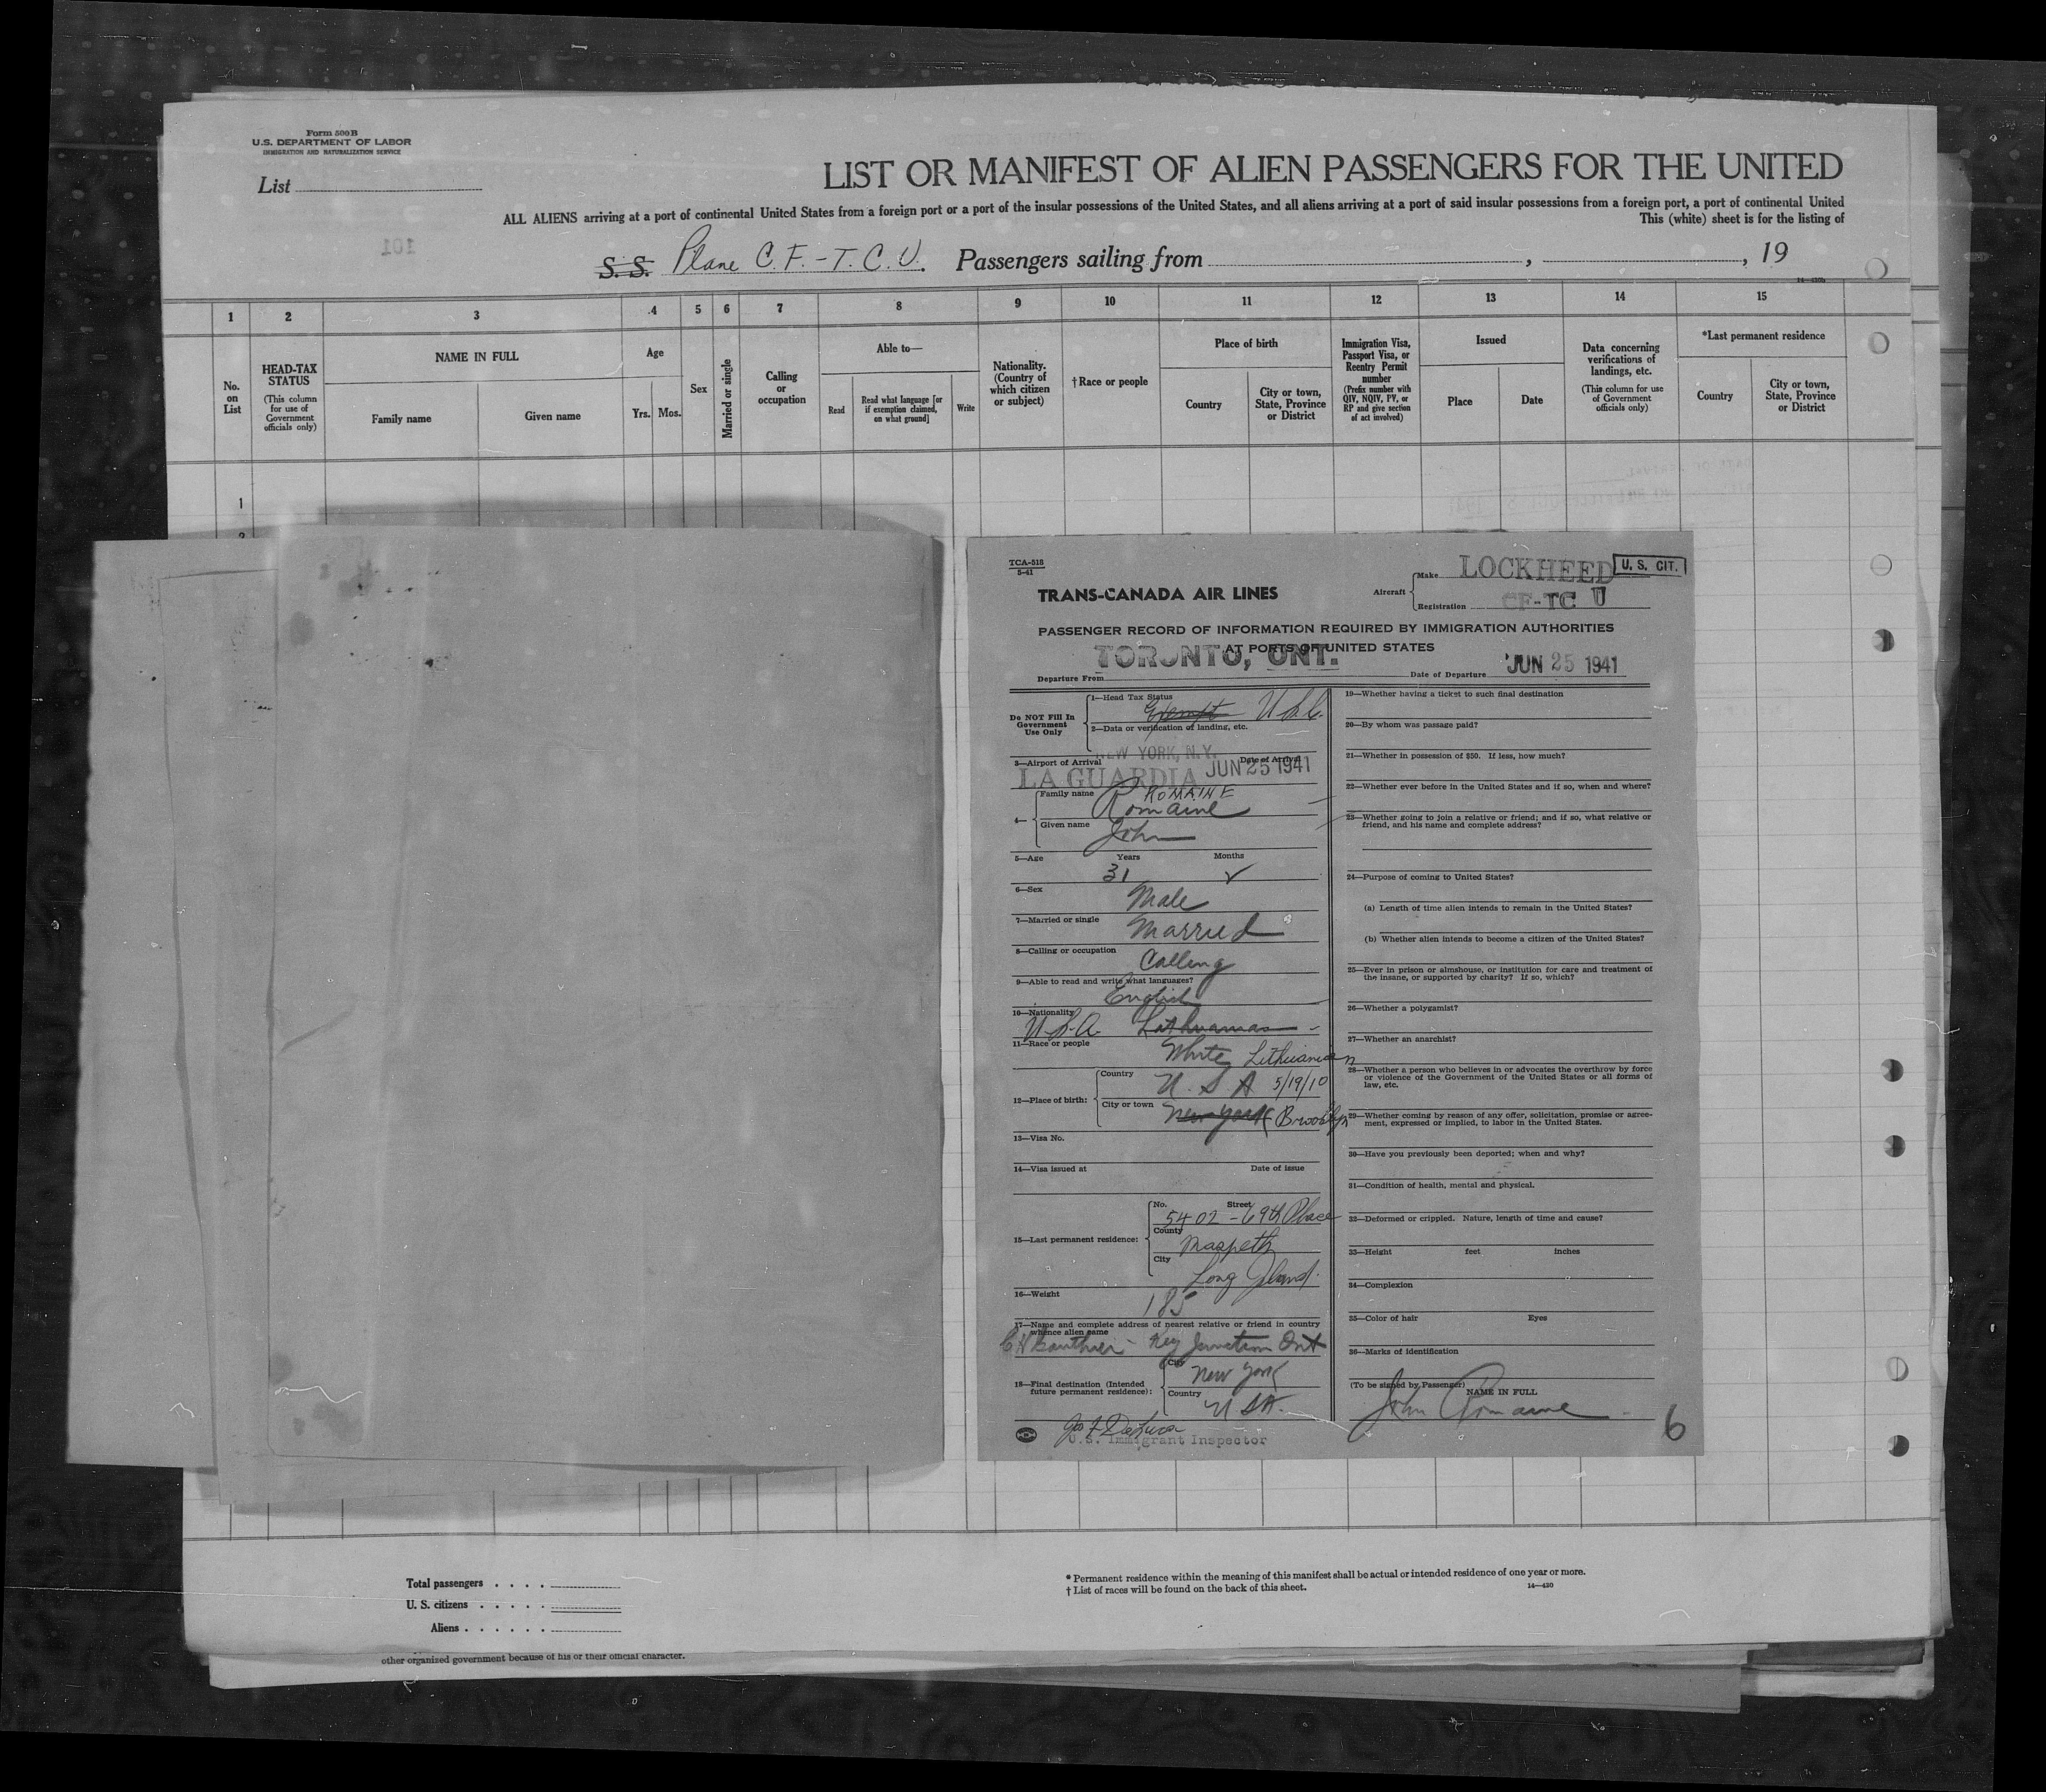 Form 500B
U.S. DEPARTMENT OF LABOR
IMMIGRATION AND NATURALIZATION SERVICE
List
LIST OR MANIFEST OF ALIEN PASSENGERS FOR THE UNITED
ALL ALIENS arriving at a port of continental United States from a foreign port or a port of the insular possessions of the United States, and all aliens arriving at a port of said insular possessions from a foreign port, a port of continental United
This (white) sheet is for the listing of
101
S. S. Plane C. F. - T. C. U. Passengers sailing from , , 19
1 2 3 4 5 6 7 8 9 10 11 12 13 14 15
No. on List
HEAD-TAX STATUS
(This column for use of Government officials only)
NAME IN FULL
Family name Given name
Age
Yrs. Mos.
Sex
Married or single
Calling or occupation
Able to—
Read
Read what language [or if exemption claimed, on what ground]
Write
Nationality. (Country of which citizen or subject)
†Race or people
Place of birth
Country
City or town, State, Province or District
Immigration Visa, Passport Visa, or Reentry Permit number
(Prefix number with QIV, NQIV, PV, or RP and give section of act involved)
Issued
Place Date
Data concerning verifications of landings, etc.
(This column for use of Government officials only)
*Last permanent residence
Country
City or town, State, Province or District
1
2
TCA-518
5-41
TRANS-CANADA AIR LINES
Aircraft
Make LOCKHEED
U. S. CIT.
Registration CF-TC U
PASSENGER RECORD OF INFORMATION REQUIRED BY IMMIGRATION AUTHORITIES
AT PORTS OF UNITED STATES
Departure From TORONTO, ONT. Date of Departure JUN 25 1941
Do NOT Fill In Government Use Only
1—Head Tax Status
Exempt U.S.C.
2—Data or verification of landing, etc.
NEW YORK, N.Y.
3—Airport of Arrival Date of Arrival
LA GUARDIA JUN 25 1941
4—
Family name ROMAINE
Romaine
Given name John
5—Age Years Months
31 ✓
6—Sex
Male
7—Married or single
Married
8—Calling or occupation
Calling
9—Able to read and write what languages?
English
10—Nationality
U.S.A. Lithuanian
11—Race or people
White Lithuanian
12—Place of birth:
Country U. S A 5/19/10
City or town New York Brooklyn
13—Visa No.
14—Visa issued at Date of issue
15—Last permanent residence:
No. Street
5402 - 69th Place
County
Maspeth
City
Long Island.
16—Weight
185
17—Name and complete address of nearest relative or friend in country whence alien came
C H Gauthier - Key Junction Ont
18—Final destination (Intended future permanent residence):
City New York
Country
U SA.
U.S. Immigrant Inspector
19—Whether having a ticket to such final destination
20—By whom was passage paid?
21—Whether in possession of $50. If less, how much?
22—Whether ever before in the United States and if so, when and where?
23—Whether going to join a relative or friend; and if so, what relative or friend, and his name and complete address?
24—Purpose of coming to United States?
(a) Length of time alien intends to remain in the United States?
(b) Whether alien intends to become a citizen of the United States?
25—Ever in prison or almshouse, or institution for care and treatment of the insane, or supported by charity? If so, which?
26—Whether a polygamist?
27—Whether an anarchist?
28—Whether a person who believes in or advocates the overthrow by force or violence of the Government of the United States or all forms of law, etc.
29—Whether coming by reason of any offer, solicitation, promise or agreement, expressed or implied, to labor in the United States.
30—Have you previously been deported; when and why?
31—Condition of health, mental and physical.
32—Deformed or crippled. Nature, length of time and cause?
33—Height feet inches
34—Complexion
35—Color of hair Eyes
36—Marks of identification
(To be signed by Passenger) NAME IN FULL
John Romaine
6
Total passengers . . . .
U. S. citizens . . . . .
Aliens . . . . . .
* Permanent residence within the meaning of this manifest shall be actual or intended residence of one year or more.
† List of races will be found on the back of this sheet.
14—430
other organized government because of his or their official character.